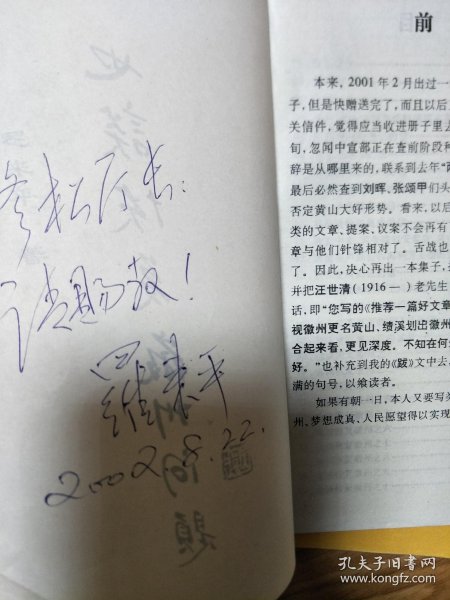 松厅长：
请赐教！
羅来平
2002.8.22.
前
本来，2001年2月出过一
子，但是快赠送完了，而且以后
关信件，觉得应当收进册子里去
旬，忽闻中宣部正在查前阶段种
辞是从哪里来的，联系到去年“两
最后必然查到刘晖、张颂甲们头
否定黄山大好形势。看来，以后
类的文章、提案、议案不会再有
章与他们针锋相对了。舌战也
了。因此，决心再出一本集子，
并把汪世清（1916—）老先生
话，即“您写的《推荐一篇好文章
视徽州更名黄山、绩溪划出徽州
合起来看，更见深度。不知在何
好。”也补充到我的《跋》文中去。
满的句号，以飨读者。
如果有朝一日，本人又要写关
州、梦想成真、人民愿望得以实现
孔夫子旧书网
www.kongfz.com